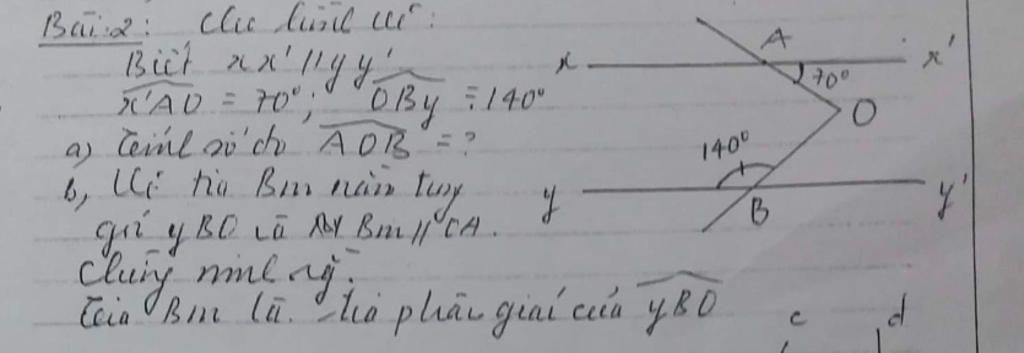 Bài 2: Cho hình vẽ:
Biết xx' // yy'
x'AO = 70°; OBy = 140°
a) Tính số đo AOB = ?
b, Vẽ tia Bm nằm trong
góc yBO và Bm // OA.
Chứng minh rằng.
Tia Bm là tia phân giác của yBO
A
x
x'
70°
O
140°
y
y'
B
c d